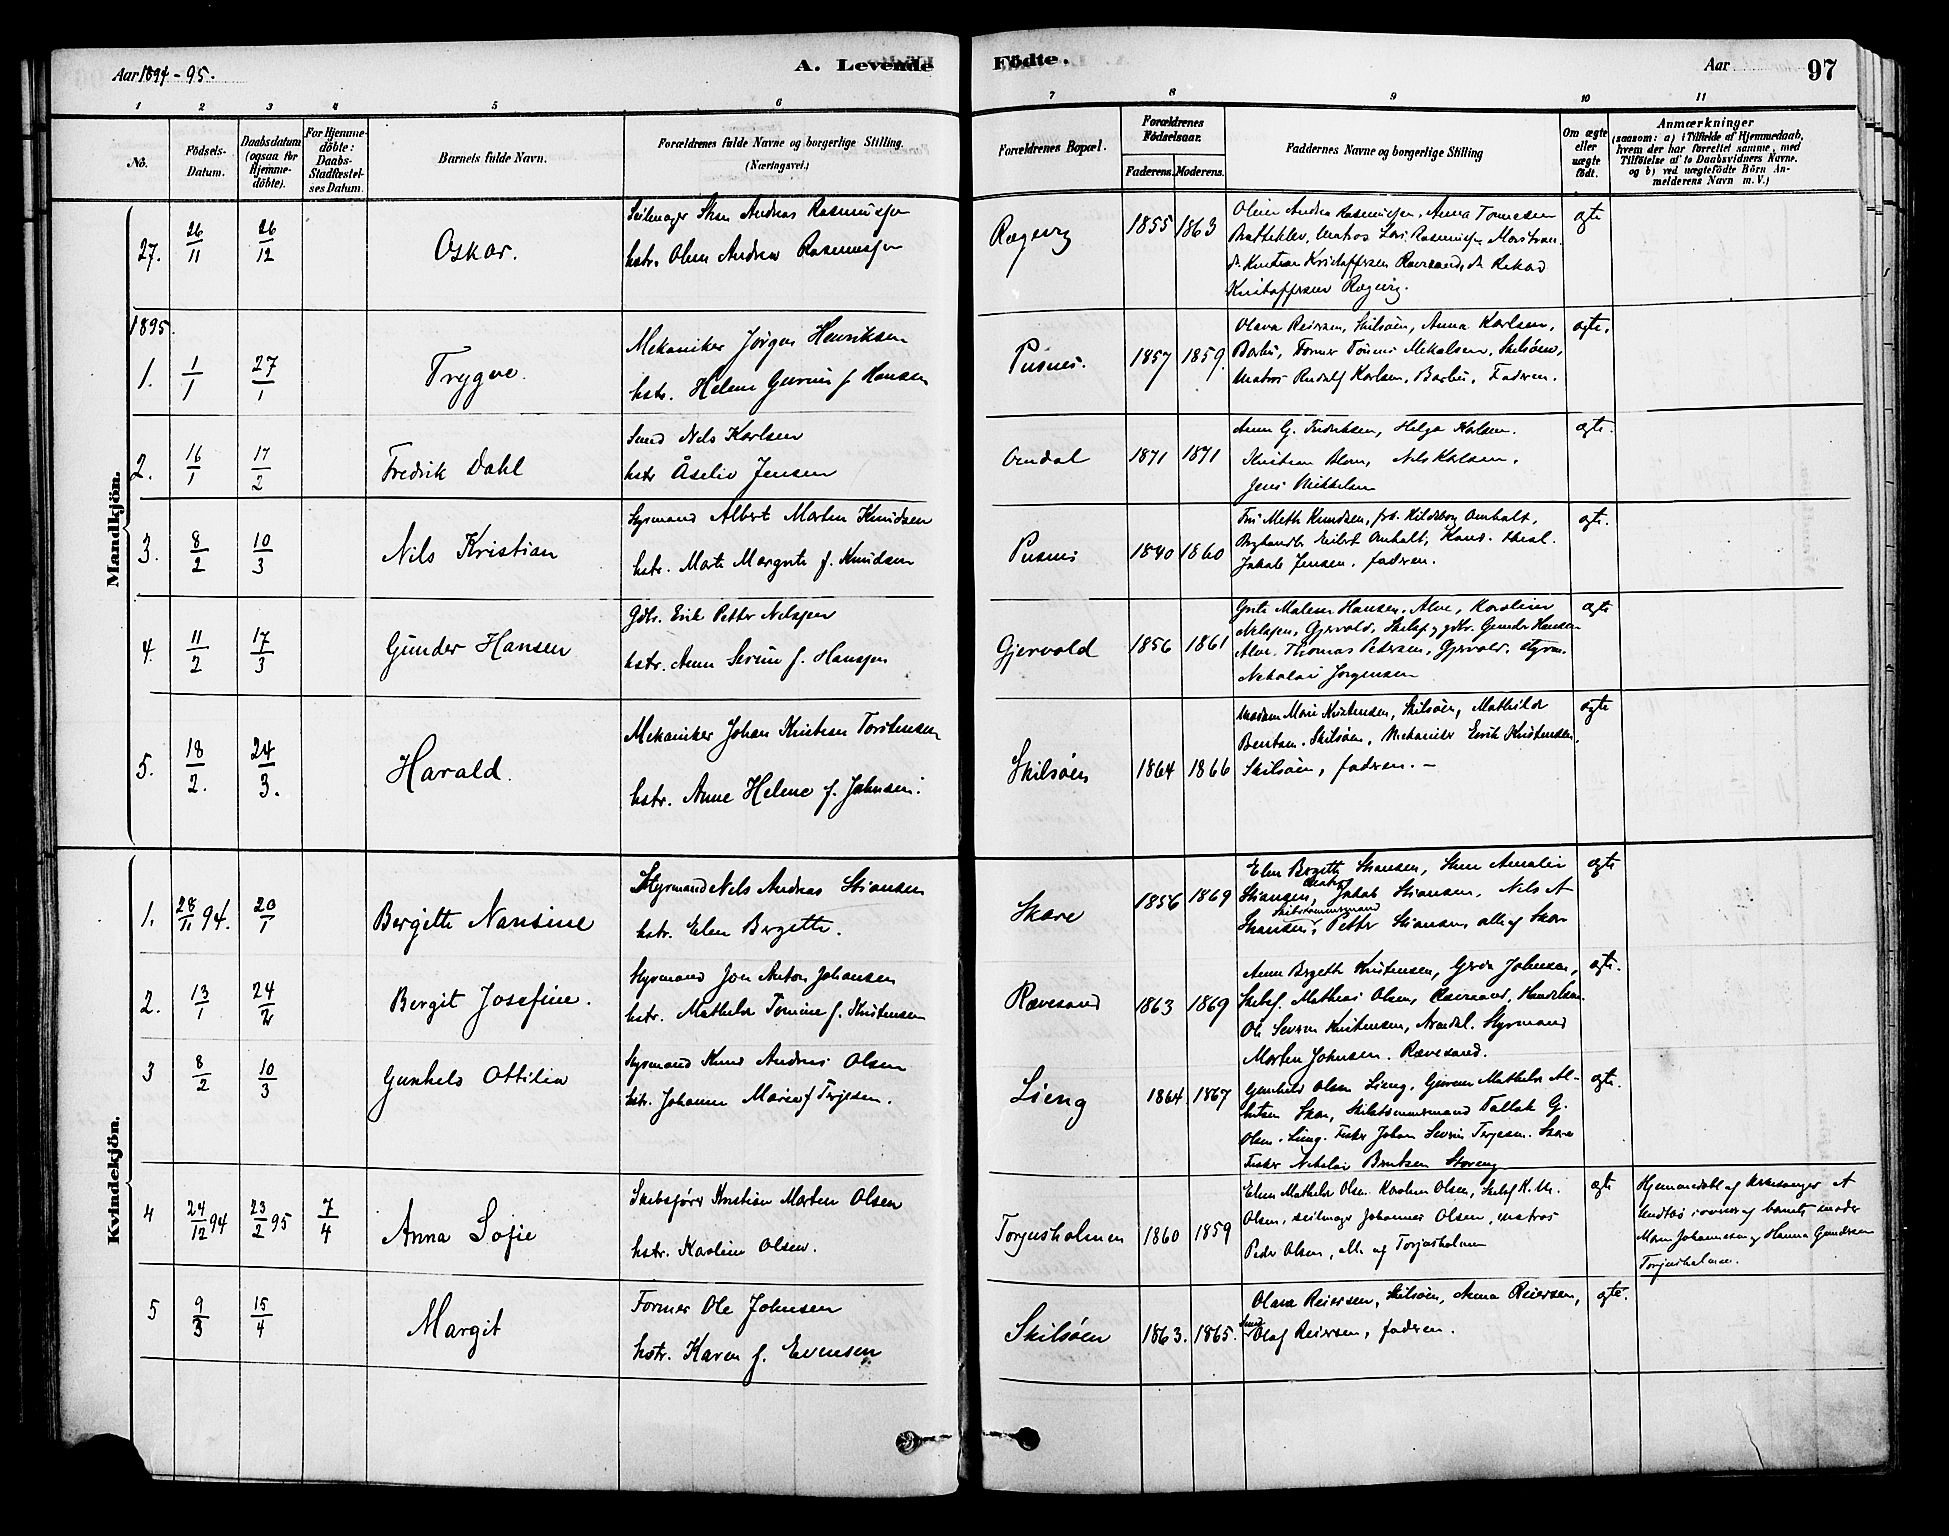 Aar 1894-95.
A. Levende
Födte.
Aar
97
1 2 3 4 5 6
7 8 9 10 11
No.
Födsels-
Datum.
Daabsdatum
(ogsaa for
Hjemme-
döbte).
For Hjemme-
döbte:
Daabs-
Stadfæstel-
ses Datum.
Barnets fulde Navn.
Forældrenes fulde Navne og borgerlige Stilling.
(Næringsvei.)
Forældrenes Bopæl.
Forældrenes
Födselsaar.
Faderens. Moderens.
Faddernes Navne og borgerlige Stilling
Om ægte
eller
uægte
født.
Anmærkninger
(saasom: a) i Tilfælde af Hjemmedaab,
hvem der har forrettet samme, med
Tilföielse af to Daabsvidners Navne,
og b) ved uægtefödte Börn An-
melderens Navn m. V.)
Mandkjön.
27. 26/11 26/12
Oskar.
Seilmager Sten Andreas Rasmussen
hstr. Olene Andrea Rasmussen
Rægevig
1855 1863
Oline Andrea Rasmussen, Anna Tomesen
Bratteklev, Matros Lars Rasmussen
Kristian Kristoffersen Rævesand,
Kristoffersen Rægevig.
ægte
1895.
1. 1/1 27/1
Trygve.
Mekaniker Jörgen Henriksen
hstr. Helene Gurine f. Hansen
Pusnes.
1857 1859.
Olava Reiersen, Skilsöen, Anna Karlsen,
Barbu, Former Tönnes Mikalsen, Skilsöen,
Matros Rudolf Karlsen, Barbu, Faderen.
ægte.
2. 16/1 17/2
Fredrik Dahl
Smed Nels Karlsen
hstr Åselie Jensen
Arendal
1871 1871
Anne G. Fredriksen, Helga Karlsen.
Kristian Blom, Nils Karlsen,
Jens Mikkelsen
ægte.
3. 8/2 10/3
Nils Kristian
Styrmand Albert Morten Knudsen
hstr. Marte Margrete f. Knudsen
Pusnes
1840 1860
Fru Meth Knudsen, frk. Hildeborg Omholt,
Eilert Omholt, Kand. theol.
Jakob Jensen, faderen.
ægte.
4. 11/2 17/3
Gunder Hansen
Gdbr. Erik Petter Nelsen
hstr. Anne Severine f. Hansen
Gjervold
1856 1861
Grete Malene Hansen, Alve, Karoline
Nelsen, Gjervold, Skibsf. og gdbr. Gunder Hansen
Alve. Thomas Pedersen, Gjervold. Styrm.
Nikolai Jörgensen
ægte
5. 18/2. 24/3.
Harald.
Mekaniker Johan Kristian Torstensen
hstr. Anne Helene f. Johnsen.
Skilsöen
1864 1866
Madam Marie Kristensen, Skilsöen, Mathilde
Bentsen. Skilsöen, Mekaniker Eirik Kristensen,
Skilsöen, faderen. —
ægte
Kvindekjön.
1. 28/11 94. 20/1
Bergitte Nansine
Styrmand Nels Andreas Stiansen
hstr. Elen Bergette.
Skare
1856 1869
Elen Bergette Stiansen, Amalie
Stiansen, Matros Jakob Stiansen, Nils A
Stiansen, Skibstømmermand Petter Stiansen, alle af Skare
ægte
2. 13/1 24/2
Bergit Josefine.
Styrmand Jon Anton Johansen
hstr. Mathilde Tomine f. Kristensen
Rævesand
1863 1869
Anne Bergette Kristensen, Gerda Johnsen,
Skibsf. Mathias Olsen, Rævesand,
Ole Severin Kristensen, Arendal. Styrmand
Morten Johnsen. Rævesand.
ægte.
3 8/2 10/3
Gunhels Ottilie
Styrmand Knud Andreas Olsen
hstr. Johanne Marie f Terjesen.
Lieng
1864. 1867
Gunhild Olsen Lieng, Gurine Mathilde
Skare, Skibstømmermand Tallak G.
Olsen. Lieng. Fisker Johan Severin Terjesen. Skare
Fisker Nikolai Bentsen Storeng
ægte.
4 24/12 94 23/2 95 7/4
Anna Sofie
Skibsförer Kristian Morten Olsen
hstr. Karoline Olsen.
Torjusholmen
1860 1859
Elen Mathilde Olsen Karoline Olsen, Skibsf. K. M.
Olsen, Seilmager Johannes Olsen, matros
Peder Olsen, alle af Torjusholmen
ægte
Hjemmedøbt af Kirkesanger A
barnets moder
Johannesen og Hanna Gundersen
Torjusholmen.
5 9/3 15/4
Margit
Former Ole Johnsen
hstr. Karen f. Evensen
Skilsöen
1863. 1865.
Olava Reiersen, Skilsöen, Anna Reiersen,
Smed Olaf Reiersen, faderen.
ægte.